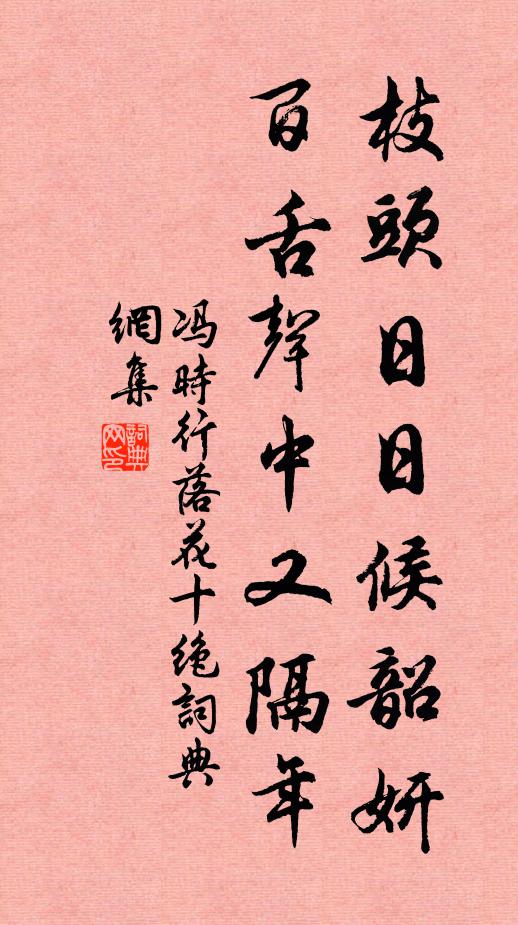 枝頭日日候韶妍
百舌聲中又隔年
冯時行落花十绝詞典
網集
詞典
网印